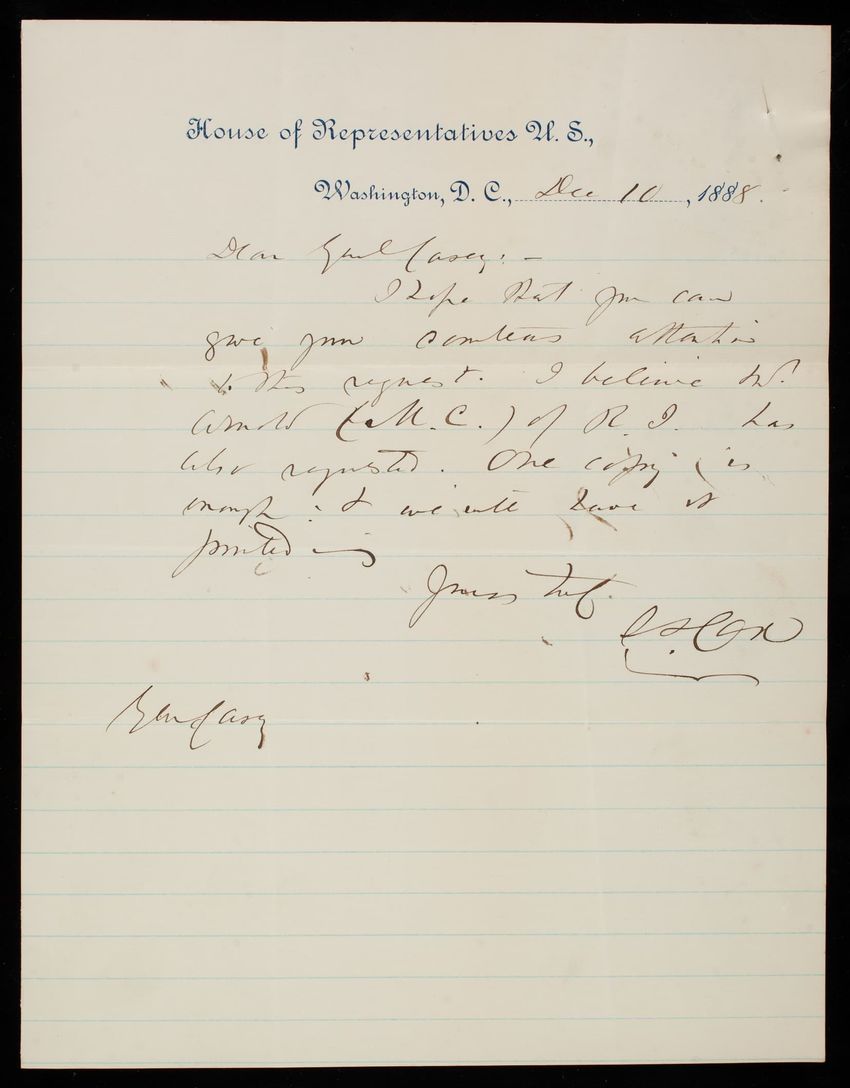 House of Representatives U. S.,
Washington, D. C., Dec 10, 1888.
Dear Genl Casey: —
I hope that you can
give your courteous attention
to this request. I believe Mr.
Arnold (M. C.) of R. I. has
also requested. One copy is
enough: & we will have it
printed
Yours Trly.
S S Cox
Gen Casey